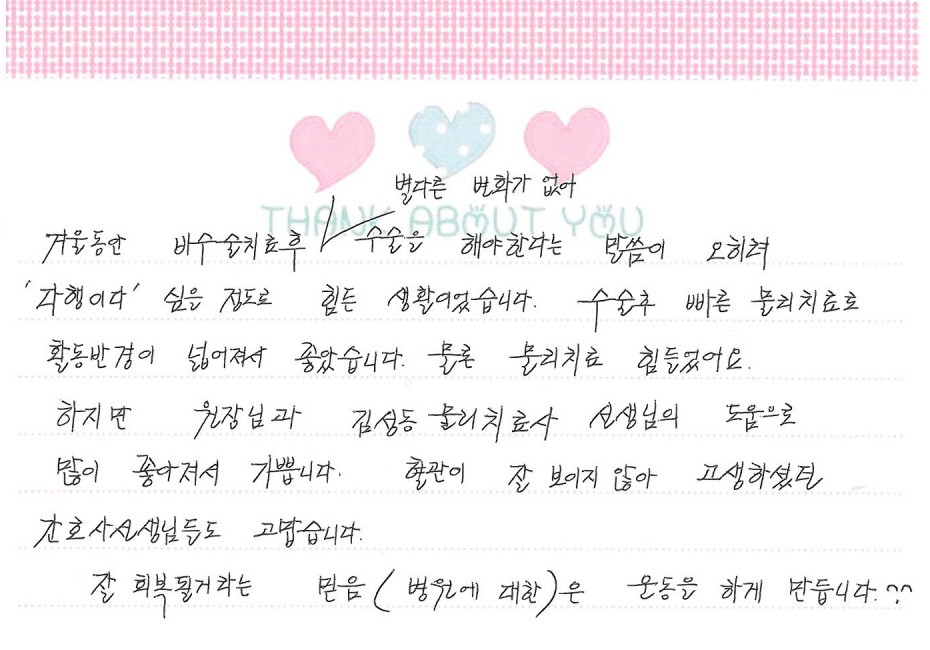 THANK ABOUT YOU
별다른 변화가 없어
겨울동안 비수술치료후 ✓ 수술을 해야한다는 말씀이 오히려
'다행이다' 싶을 정도로 힘든 생활이었습니다. 수술후 빠른 물리치료로
활동반경이 넓어져서 좋았습니다. 물론 물리치료 힘들었어요.
하지만 원장님과 김성동 물리치료사 선생님의 도움으로
많이 좋아져서 기쁩니다. 혈관이 잘 보이지 않아 고생하셨던
간호사선생님들도 고맙습니다.
잘 회복될거라는 믿음(병원에 대한)은 운동을 하게 만듭니다.^^